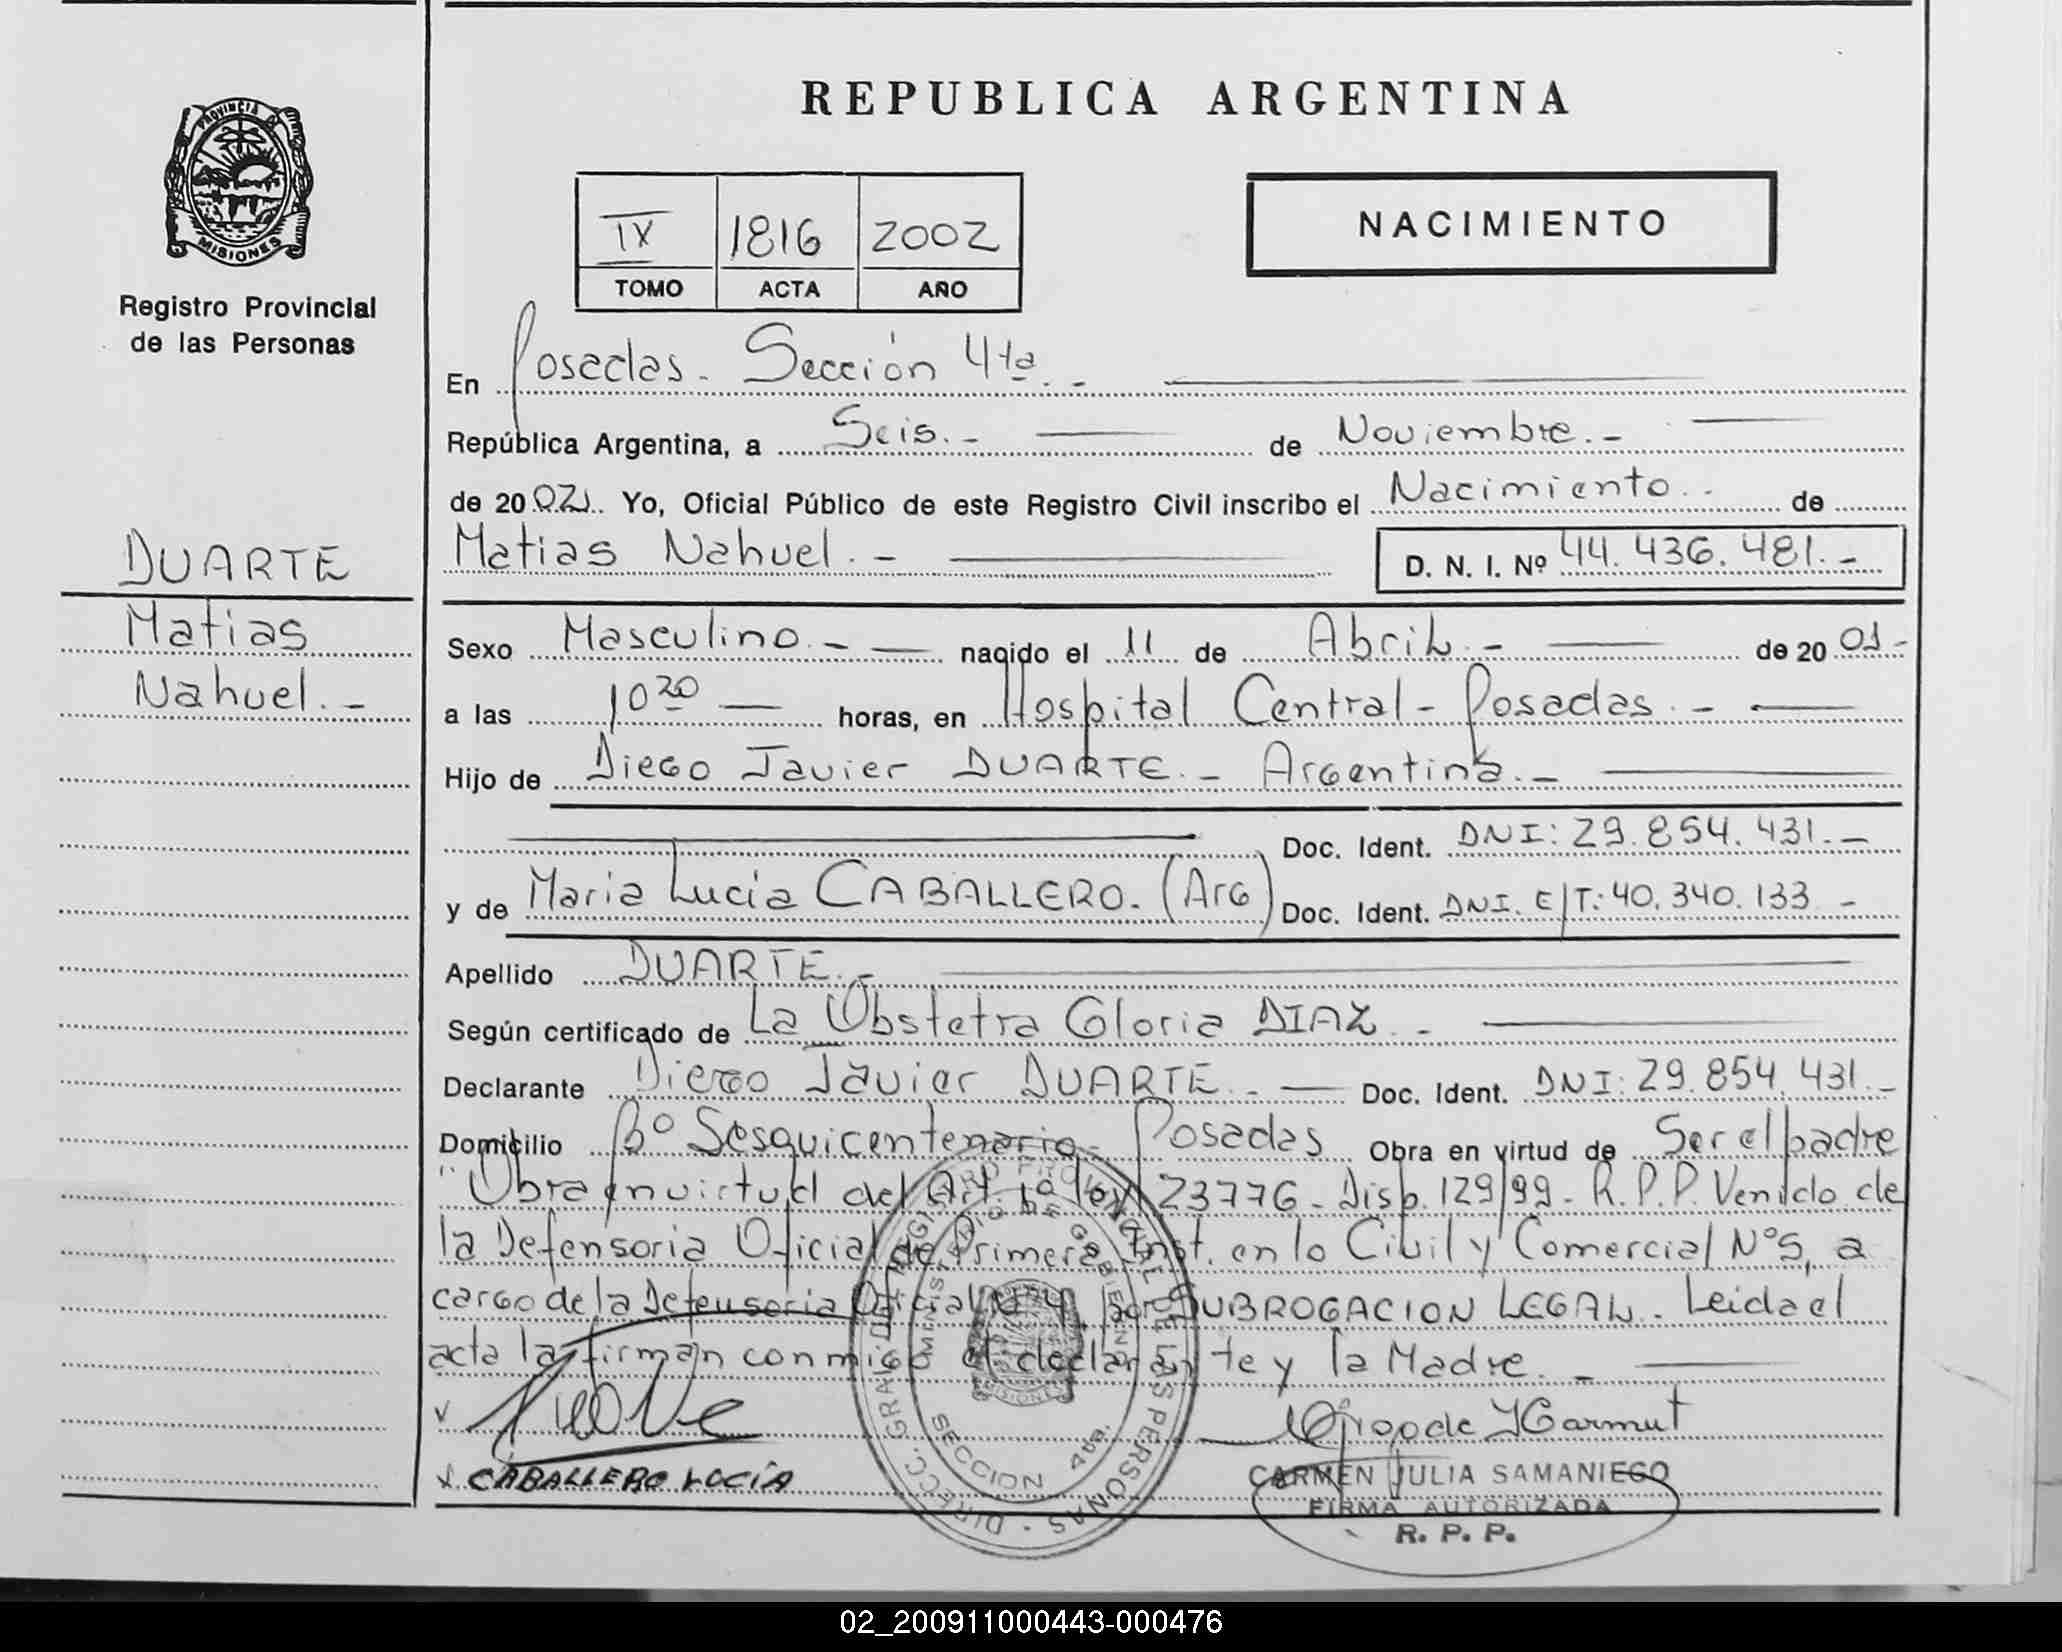 PROVINCIA DE
MISIONES
Registro Provincial
de las Personas
DUARTE
Matias
Nahuel.-
REPUBLICA ARGENTINA
IX 1816 2002
TOMO ACTA AÑO
NACIMIENTO
En Posadas. Sección 4ta.-
República Argentina, a Seis.- de Noviembre.-
de 2002. Yo, Oficial Público de este Registro Civil inscribo el Nacimiento.- de
Matias Nahuel.- D. N. I. Nº 44.436.481.-
Sexo Masculino.- nacido el 11 de Abril.- de 2001-
a las 10 20 horas, en Hospital Central - Posadas.-
Hijo de Diego Javier DUARTE.- Argentina.-
Doc. Ident. DNI: 29.854.431.-
y de Maria Lucia CABALLERO. (Arg) Doc. Ident. DNI. E/T: 40.340.133 -
Apellido DUARTE.-
Según certificado de La Obstetra Gloria DIAZ.-
Declarante Diego Javier DUARTE.- Doc. Ident. DNI: 29.854.431.-
Domicilio Bº Sesquicentenario- Posadas Obra en virtud de Ser el padre
"Obra en virtud del Art. 1º ley 23776 - Disp. 129/99 - R.P.P. Venido de
la Defensoria Oficial de Primera Inst. en lo Civil y Comercial Nº5, a
cargo de la Defensoria Oficial Nº4, por SUBROGACION LEGAL. Leida el
acta la firman conmigo el declarante y la Madre.-
CABALLERO LUCÍA
CARMEN JULIA SAMANIEGO
FIRMA AUTORIZADA
R. P. P.
DIRECC. GRAL. DEL REGISTRO PROVINCIAL DE LAS PERSONAS
MINISTERIO DE GOBIERNO
SECCION 4ta.
MISIONES
02_200911000443-000476